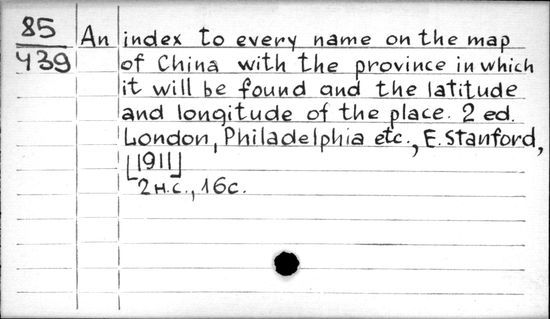 85
439
An index to every name on the map
of China with the province in which
it will be found and the latitude
and longitude of the place. 2 ed.
London, Philadelphia etc., E. Stanford,
[1911]
2 н.с., 16с.